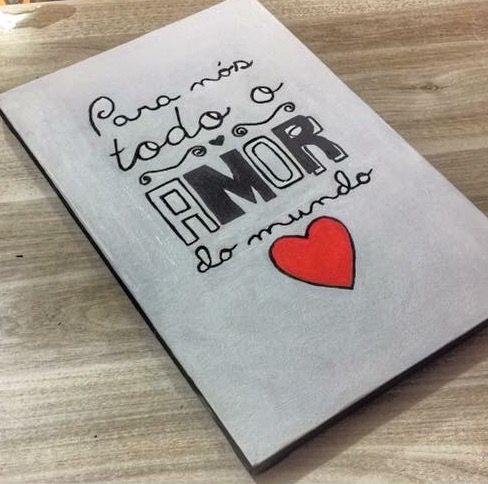 Para nós
todo o
AMOR
do mundo